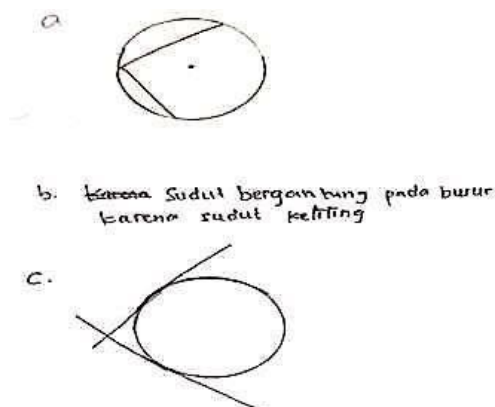 a
b. karena sudut bergantung pada busur
karena sudut keliling
c.